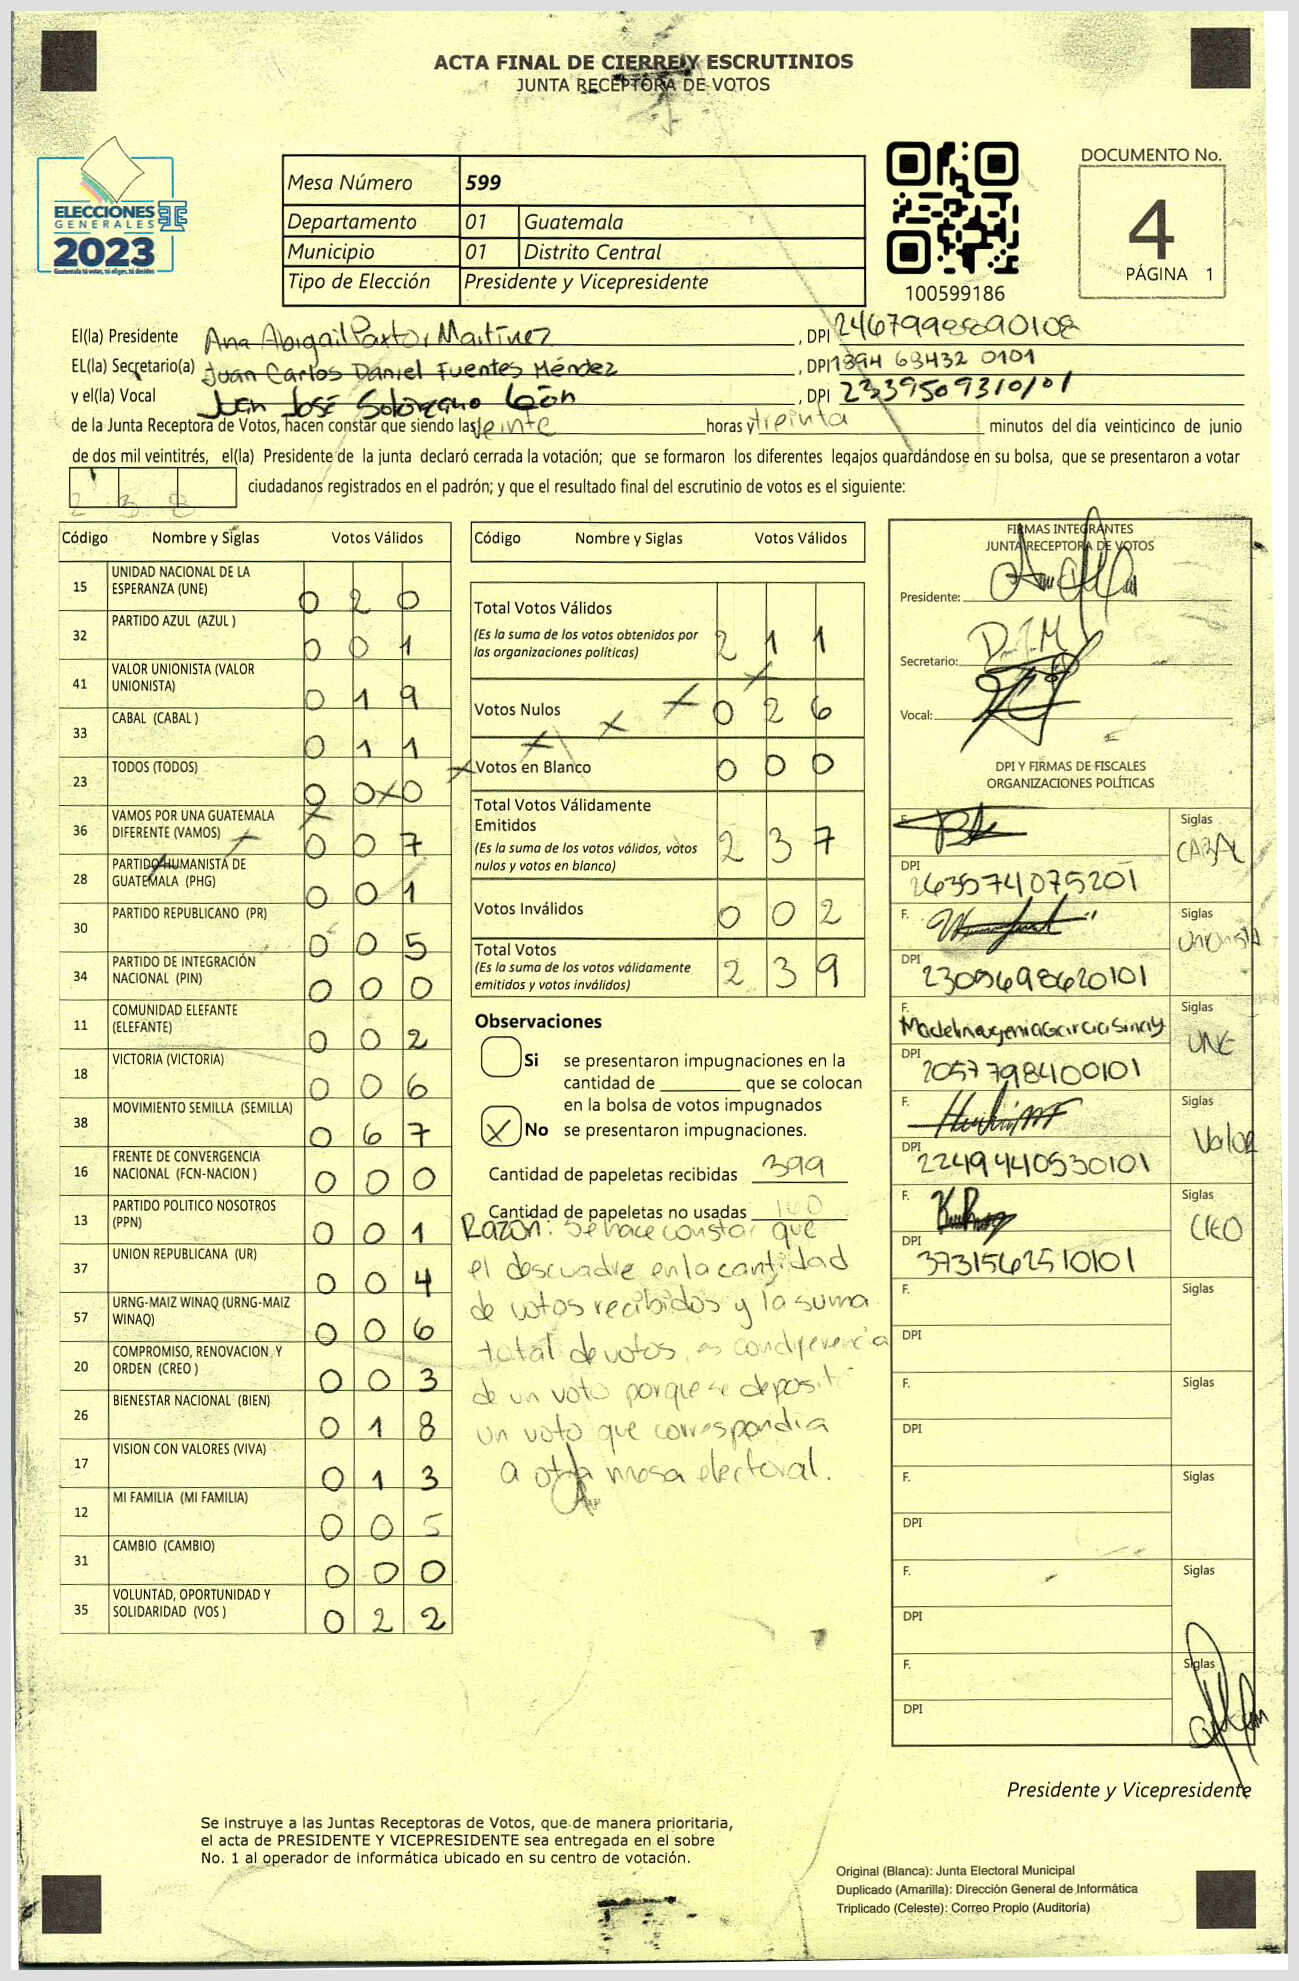 ACTA FINAL DE CIERRE Y ESCRUTINIOS
JUNTA RECEPTORA DE VOTOS
ELECCIONES
GENERALES
2023
Guatemala tú votas, tú eliges, tú decides
Mesa Número 599
Departamento 01 Guatemala
Municipio 01 Distrito Central
Tipo de Elección Presidente y Vicepresidente
100599186
DOCUMENTO No.
4
PÁGINA 1
El(la) Presidente Ana Abigail Paxtor Martínez, DPI
EL(la) Secretario(a) Juan Carlos Daniel Fuentes Méndez, DPI 1894 63432 0101
y el(la) Vocal Juan José Solorzano León, DPI 2339509310101
de la Junta Receptora de Votos, hacen constar que siendo las veinte horas y treinta minutos del día veinticinco de junio
de dos mil veintitrés, el(la) Presidente de la junta declaró cerrada la votación; que se formaron los diferentes legajos guardándose en su bolsa, que se presentaron a votar
238 ciudadanos registrados en el padrón; y que el resultado final del escrutinio de votos es el siguiente:
Código Nombre y Siglas Votos Válidos
15 UNIDAD NACIONAL DE LA
ESPERANZA (UNE) 0 2 0
32 PARTIDO AZUL (AZUL ) 0 0 1
41 VALOR UNIONISTA (VALOR
UNIONISTA) 0 1 9
33 CABAL (CABAL ) 0 1 1
23 TODOS (TODOS) 0 0 0
36 VAMOS POR UNA GUATEMALA
DIFERENTE (VAMOS) 0 0 7
28 PARTIDO HUMANISTA DE
GUATEMALA (PHG) 0 0 1
30 PARTIDO REPUBLICANO (PR) 0 0 5
34 PARTIDO DE INTEGRACIÓN
NACIONAL (PIN) 0 0 0
11 COMUNIDAD ELEFANTE
(ELEFANTE) 0 0 2
18 VICTORIA (VICTORIA) 0 0 6
38 MOVIMIENTO SEMILLA (SEMILLA) 0 6 7
16 FRENTE DE CONVERGENCIA
NACIONAL (FCN-NACION ) 0 0 0
13 PARTIDO POLITICO NOSOTROS
(PPN) 0 0 1
37 UNION REPUBLICANA (UR) 0 0 4
57 URNG-MAIZ WINAQ (URNG-MAIZ
WINAQ) 0 0 6
20 COMPROMISO, RENOVACION Y
ORDEN (CREO ) 0 0 3
26 BIENESTAR NACIONAL (BIEN) 0 1 8
17 VISION CON VALORES (VIVA) 0 1 3
12 MI FAMILIA (MI FAMILIA) 0 0 5
31 CAMBIO (CAMBIO) 0 0 0
35 VOLUNTAD, OPORTUNIDAD Y
SOLIDARIDAD (VOS ) 0 2 2
Código Nombre y Siglas Votos Válidos
Total Votos Válidos 2 1 1
(Es la suma de los votos obtenidos por
las organizaciones políticas)
Votos Nulos 0 2 6
Votos en Blanco 0 0 0
Total Votos Válidamente
Emitidos 2 3 7
(Es la suma de los votos válidos, votos
nulos y votos en blanco)
Votos Inválidos 0 0 2
Total Votos 2 3 9
(Es la suma de los votos válidamente
emitidos y votos inválidos)
Observaciones
Si se presentaron impugnaciones en la
cantidad de ________ que se colocan
en la bolsa de votos impugnados
X No se presentaron impugnaciones.
Cantidad de papeletas recibidas 399
Cantidad de papeletas no usadas 160
Razón: Se hace constar que
el descuadre en la cantidad
de votos recibidos y la suma
total de votos, es con diferencia
de un voto porque se deposit
un voto que correspondia
a otra mesa electoral.
FIRMAS INTEGRANTES
JUNTA RECEPTORA DE VOTOS
Presidente:
Secretario:
Vocal:
DPI Y FIRMAS DE FISCALES
ORGANIZACIONES POLÍTICAS
F. Siglas
CABAL
DPI 2635741075201
F. Siglas
Unionista
DPI 2305698620101
F. Siglas
UNE
DPI 2057798400101
F. Siglas
Valor
DPI 2249440530101
F. Siglas
CREO
DPI 3731562510101
F. Siglas
DPI
F. Siglas
DPI
F. Siglas
DPI
F. Siglas
DPI
F. Siglas
DPI
Presidente y Vicepresidente
Se instruye a las Juntas Receptoras de Votos, que de manera prioritaria,
el acta de PRESIDENTE Y VICEPRESIDENTE sea entregada en el sobre
No. 1 al operador de informática ubicado en su centro de votación.
Original (Blanca): Junta Electoral Municipal
Duplicado (Amarilla): Dirección General de Informática
Triplicado (Celeste): Correo Propio (Auditoría)